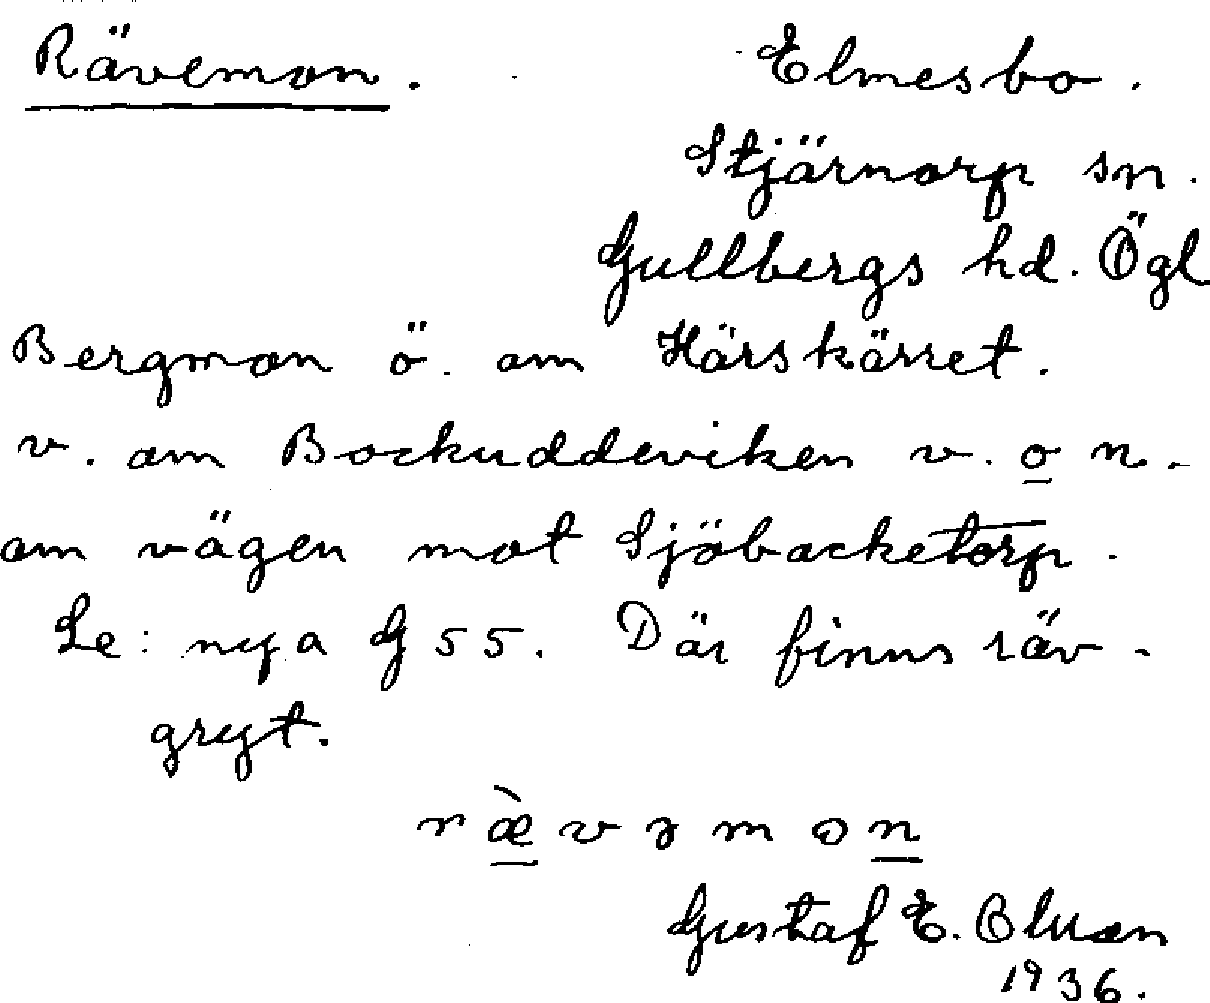 Rävemon. Elmesbo.
Stjärnorp sn.
Gullbergs hd. Ögl
Bergmon ö. om Härskärret.
v. om Bockuddeviken v. o n.
om vägen mot Sjöbacketorp.
Se: nya G 55. Där finns räv-
gryt.
r æ̀ v ə m o n
Gustaf E.
1936.